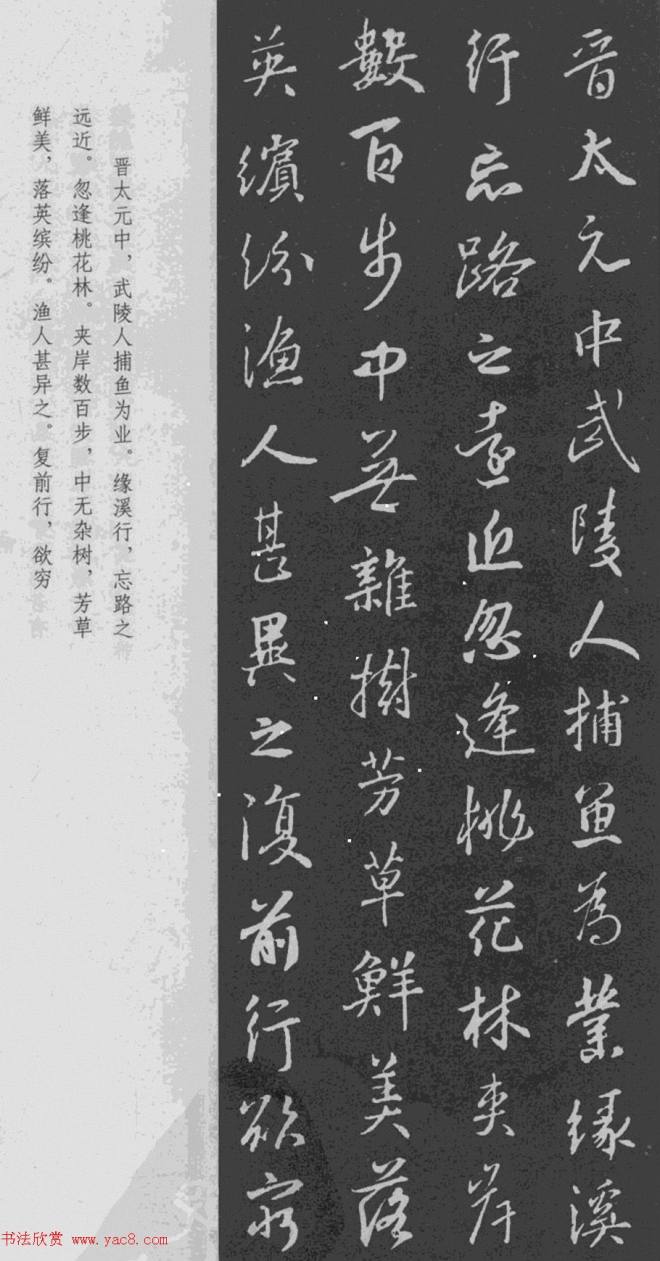 晋太元中武陵人捕鱼為業缘溪
行忘路之遠近忽逢桃花林夹岸
數百步中無雜樹芳草鮮美落
英繽紛渔人甚異之復前行欲窮
晋太元中，武陵人捕鱼为业。缘溪行，忘路之
远近。忽逢桃花林。夹岸数百步，中无杂树，芳草
鲜美，落英缤纷。渔人甚异之。复前行，欲穷
书法欣赏 www.yac8.com